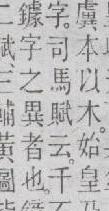 虞本以木。始皇
字。司馬賦云。千
鐻字之異者也。
二賦三輔黃圖